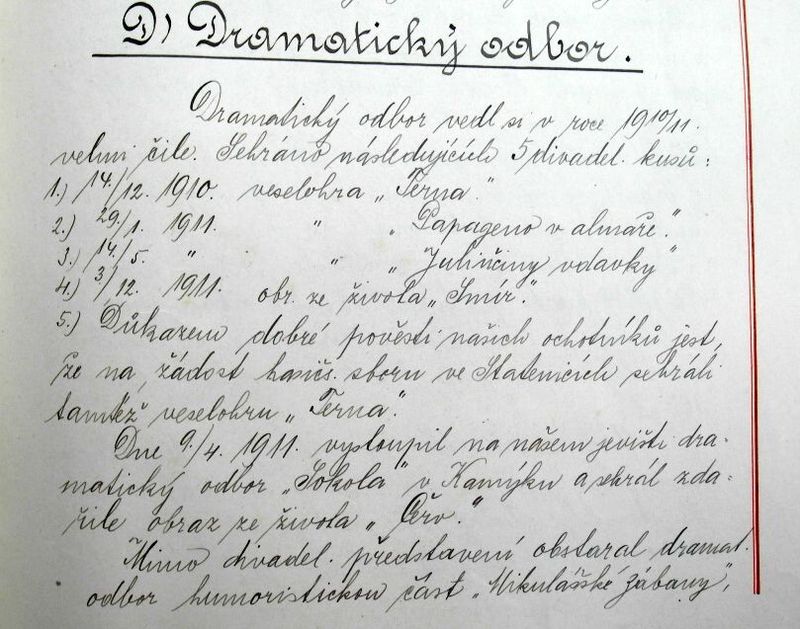 D) Dramatický odbor.
Dramatický odbor vedl si v roce 1910/11.
velmi čile. Sehráno následujících 5 divadel. kusů:
1.) 14./12. 1910. veselohra „Terna."
2.) 29./1. 1911. " „Papageno v almaře."
3.) 14./5. " " „Julinčiny vdavky"
4.) 3/12. 1911. obr. ze života „Smír."
5.) Důkazem dobré pověsti našich ochotníků jest,
že na žádost hasičs. sboru ve Statenicích sehráli
tamtéž veselohru „Terna".
Dne 9./4. 1911. vystoupil na našem jevišti dra-
matický odbor „Sokola" v Kamýku a sehrál zda-
řile obraz ze života „Červ."
Mimo divadel. představení obstaral dramat.
odbor humoristickou část „Mikulášské zábavy",